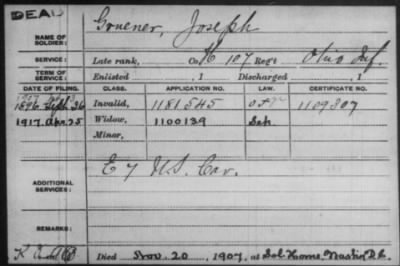 DEAD
NAME OF SOLDIER: Gruener, Joseph
SERVICE: Late rank, Co. K 107 Reg't Ohio Inf.
TERM OF SERVICE: Enlisted , 1 Discharged , 1
DATE OF FILING. CLASS. APPLICATION NO. LAW. CERTIFICATE NO.
1896 Sept 26 Invalid, 1181545 1109307
1917 Apr. 25 Widow, 1100139
Minor,
ADDITIONAL SERVICES: E 7 U.S. Cav.
REMARKS:
Died Nov. 20, 1907, at Sol. Home, Wash'n D.C.